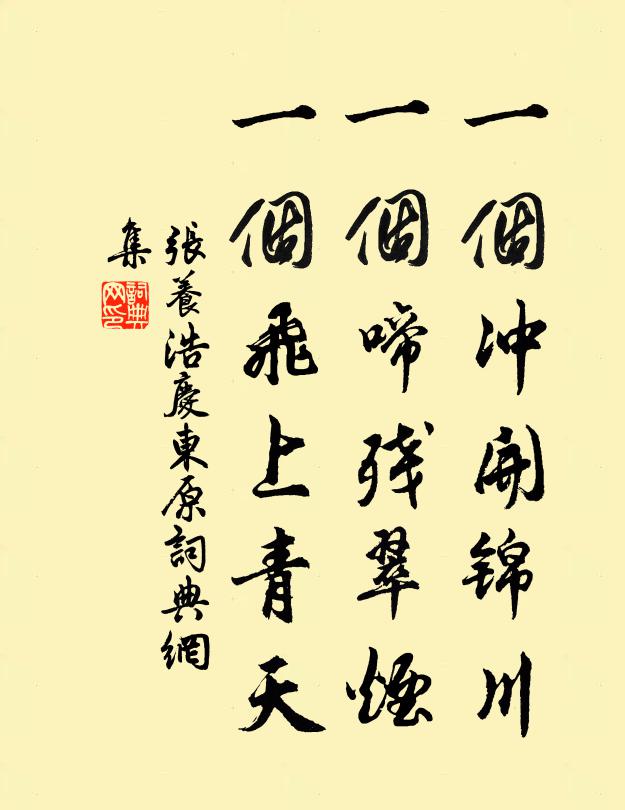 一個冲開锦川
一個啼残翠煙
一個飛上青天
張養浩慶東原詞典網
集
詞典
网印